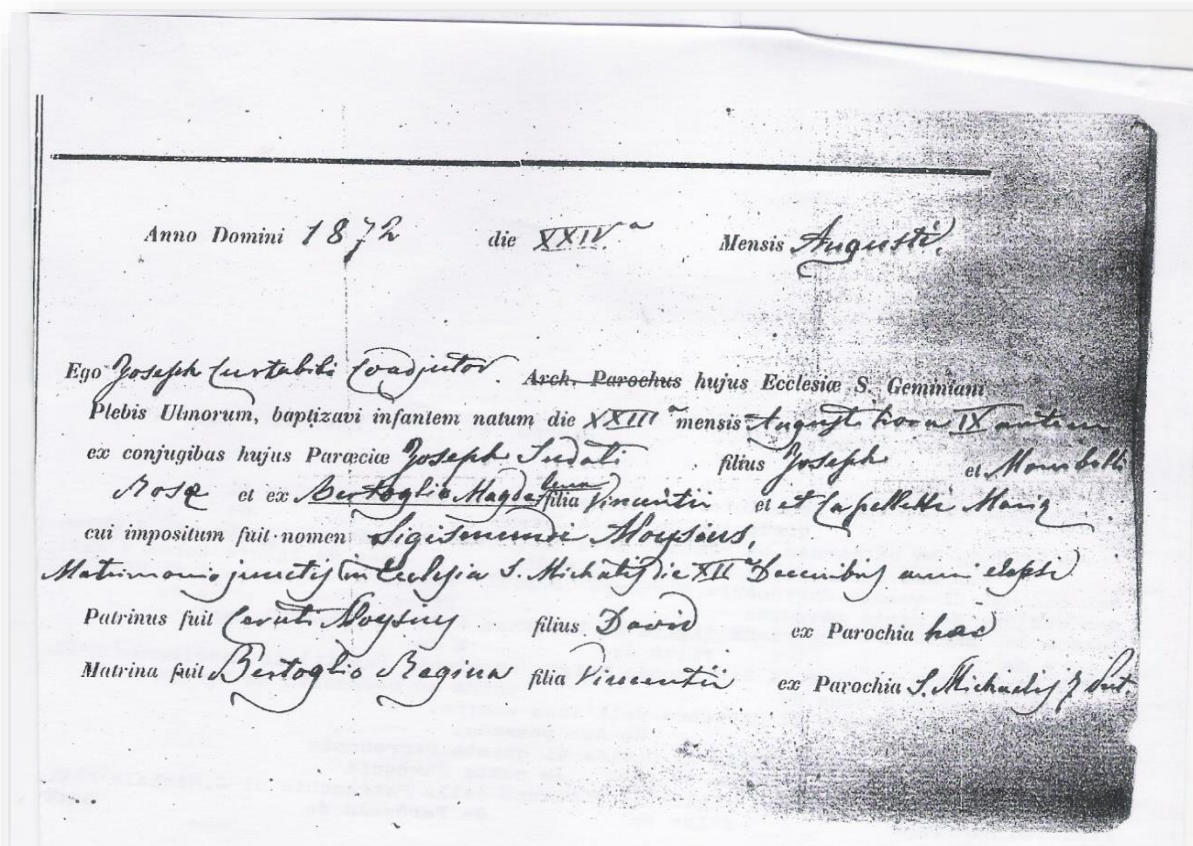 Anno Domini 1872 die XXIV.a Mensis Augusti.
Ego Joseph Curtabili Coadjutor. Arch. Parochus hujus Ecclesiæ S. Geminiani
Plebis Ulmorum, baptizavi infantem natum die XXIII a mensis Augusti hora IX antem
ex conjugibas hujus Paræciæ Joseph Sudati filius Joseph et
Rosæ et ex Bertoglio Magdalena filia Vincentii et et Capelletti Mariæ
cui impositum fuit nomen Sigismundi Aloysius,
Matrimonio junctis in Ecclesia S. Michaelis die XII a Decembris anni elapsi
Patrinus fuit Ceruti Aloysius filius David ex Parochia hac
Matrina fuit Bertoglio Regina filia Vincentii ex Parochia S. Michaelis